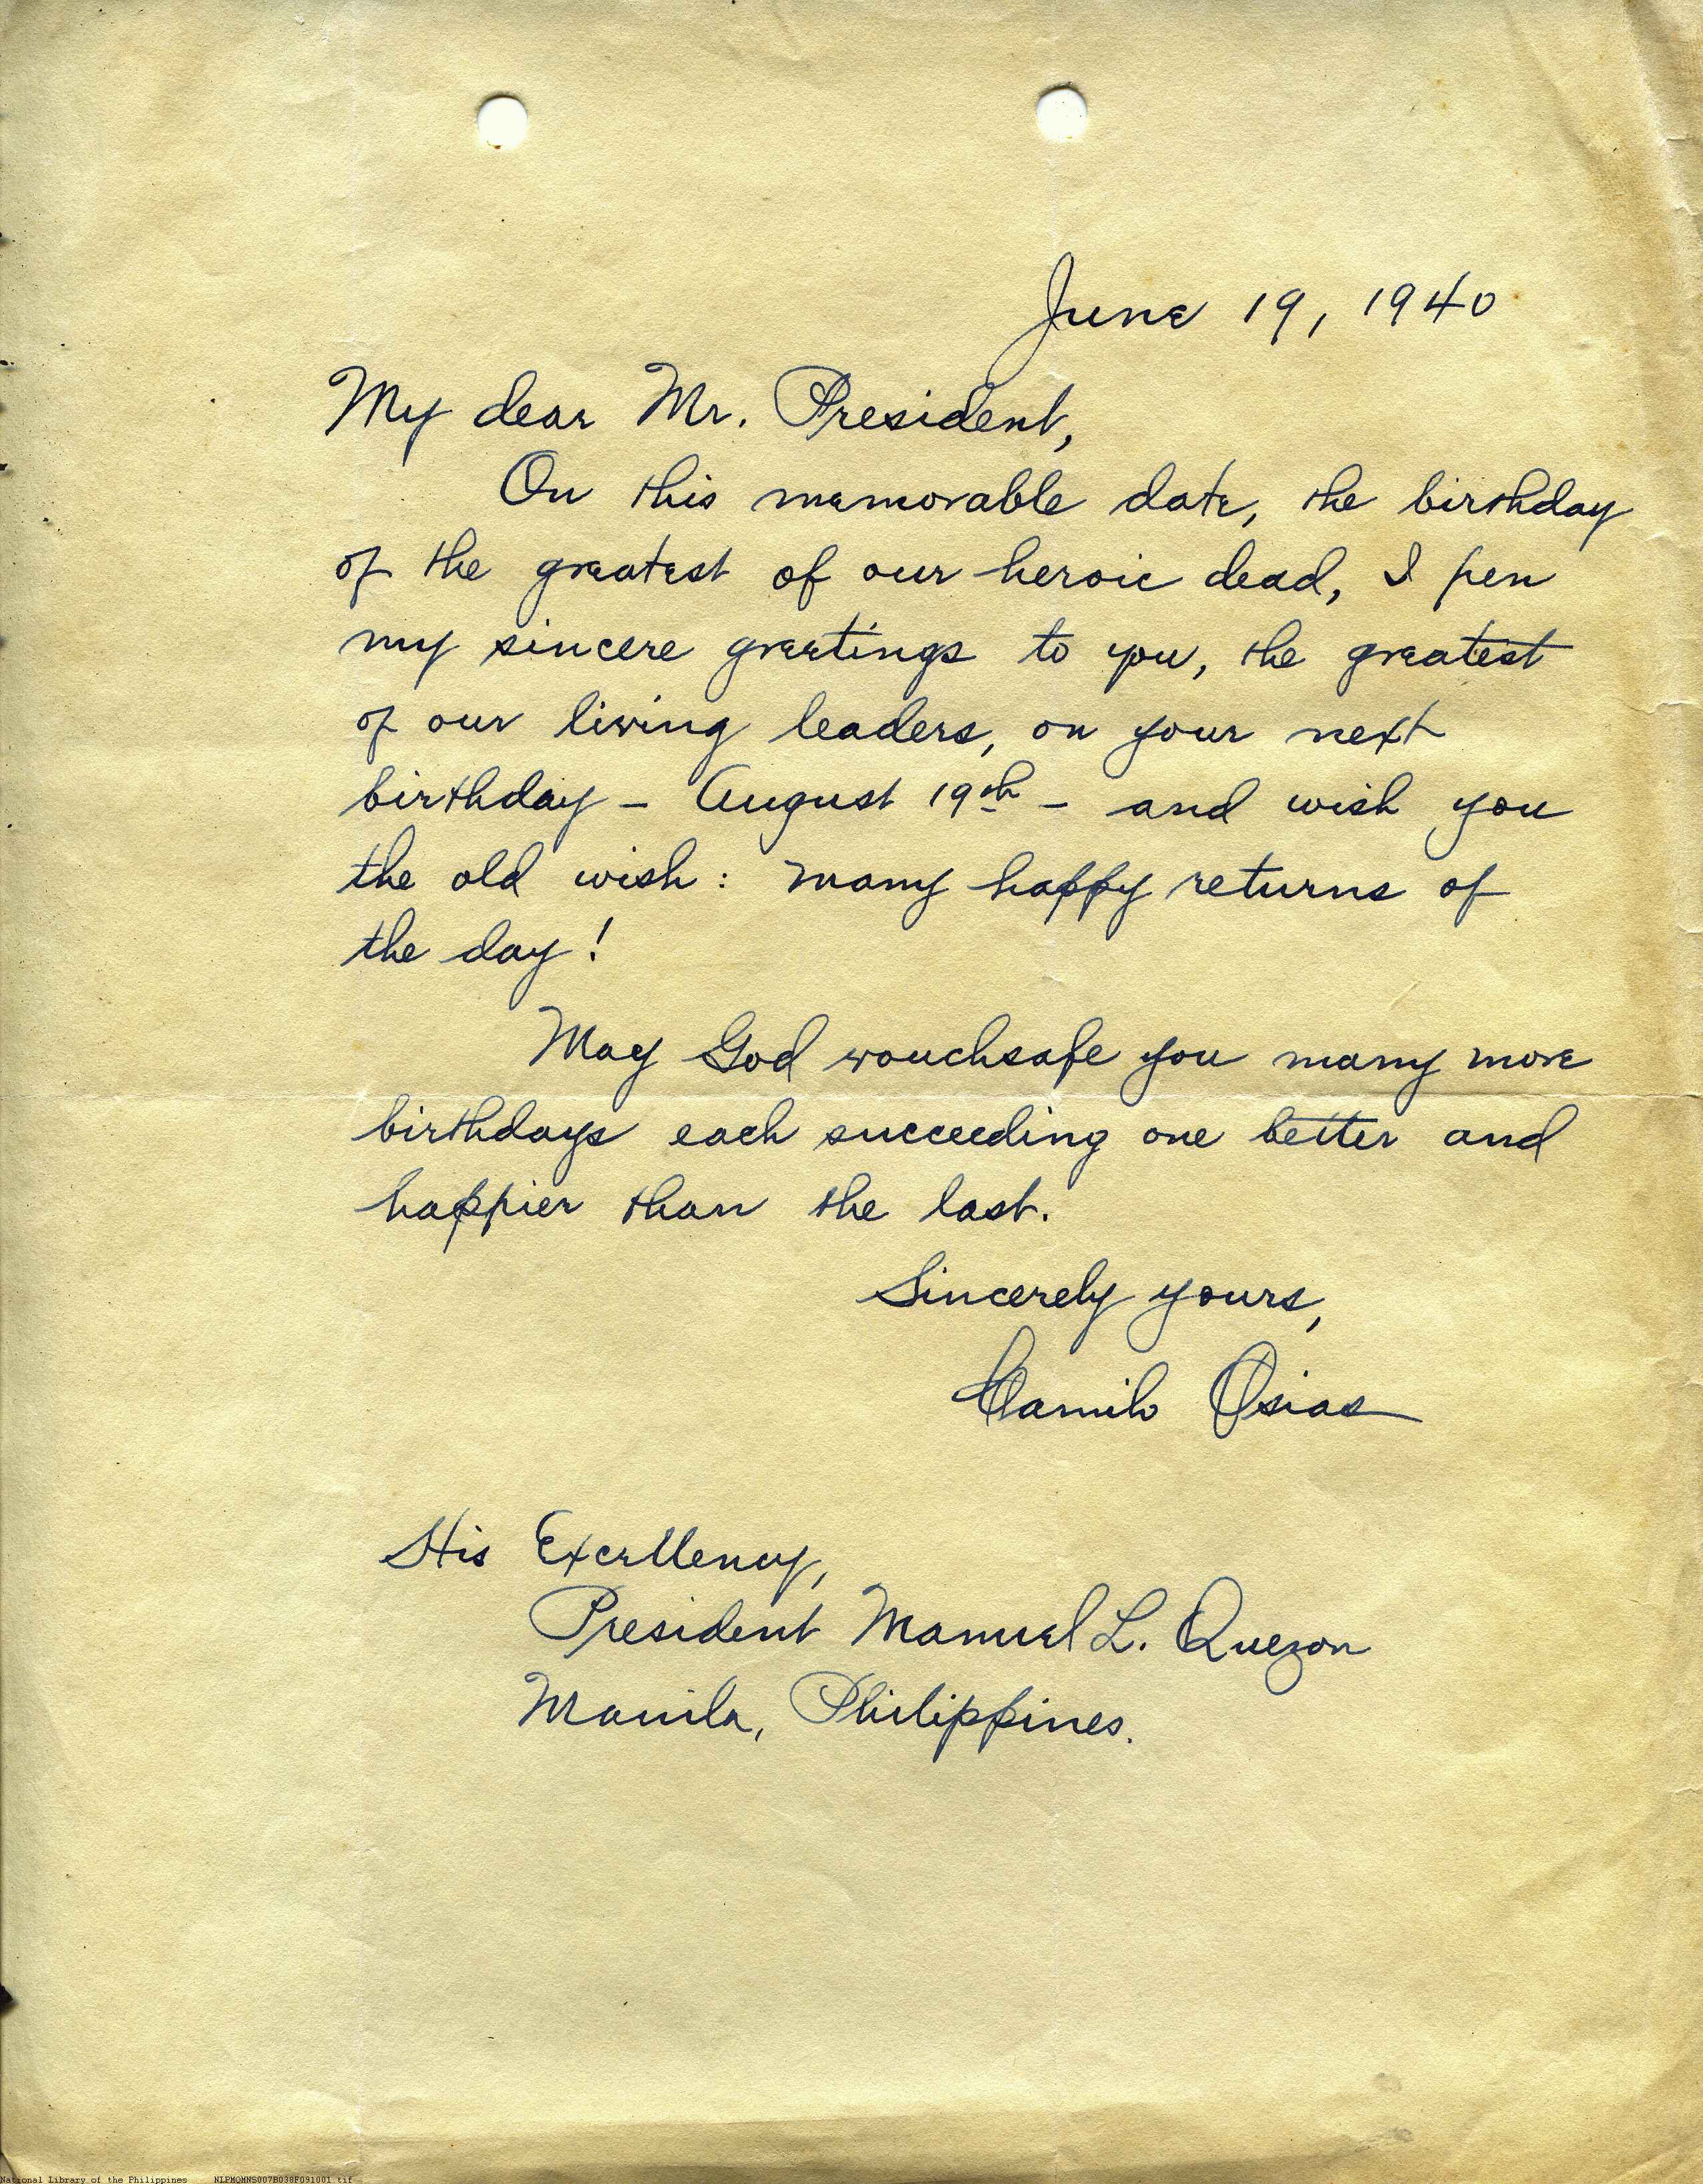 June 19, 1940
My dear Mr. President,
On this memorable date, the birthday
of the greatest of our heroic dead, I pen
my sincere greetings to you, the greatest
of our living leaders, on your next
birthday - August 19th - and wish you
the old wish: many happy returns of
the day!
May God vouchsafe you many more
birthdays each succeeding one better and
happier than the last.
Sincerely yours,
Camilo Osias
His Excellency,
President Manuel L. Quezon
Manila, Philippines.
National Library of the Philippines NLPMQMNS007B038F091001.tif